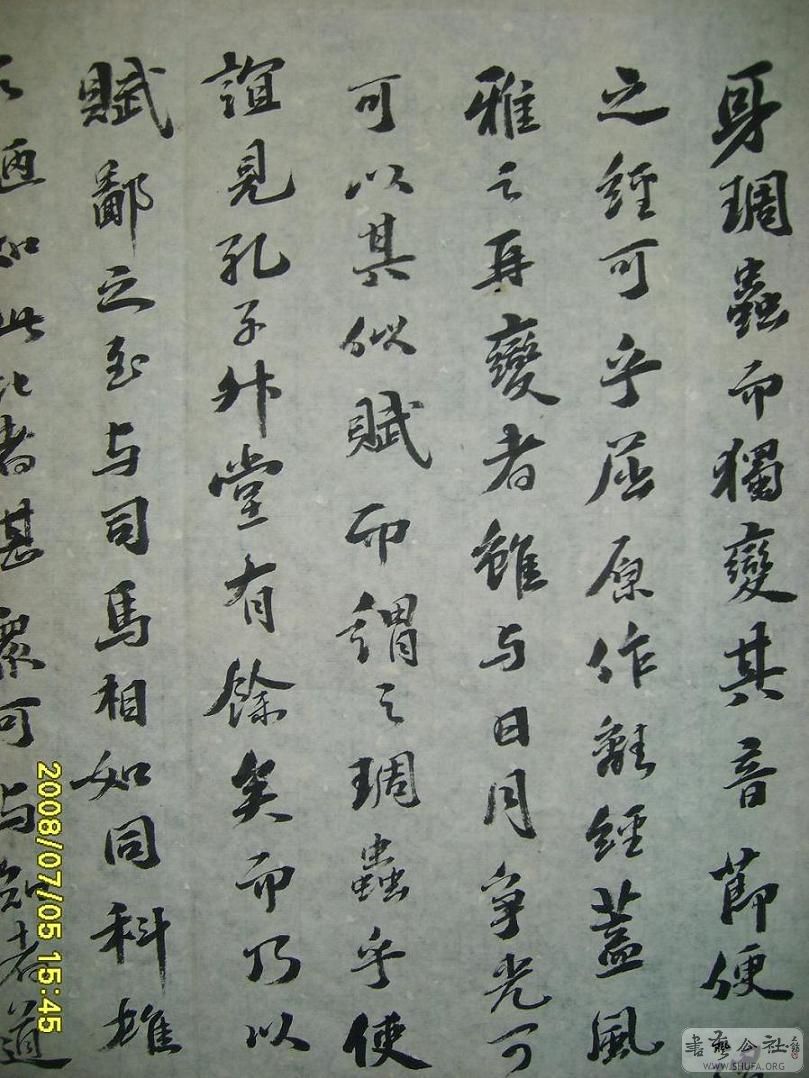 身琱蟲而獨變其音節便
之經可乎屈原作離經蓋風
雅之再變者雖与日月爭光可
可以其似賦而謂之琱蟲乎使
誼見孔子升堂有餘矣而乃以
賦鄙之至与司馬相如同科雄
之陋如此比者甚眾可与知者道
2008/07/05 15:45
書藝公社
WWW.SHUFA.ORG